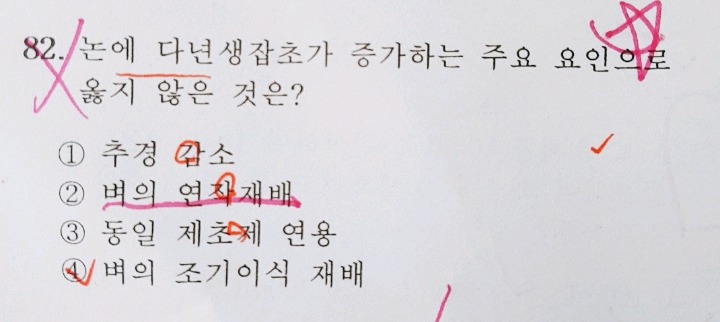 82. 논에 다년생잡초가 증가하는 주요 요인으로
옳지 않은 것은?
① 추경 감소
② 벼의 연작재배
③ 동일 제초제 연용
④ 벼의 조기이식 재배